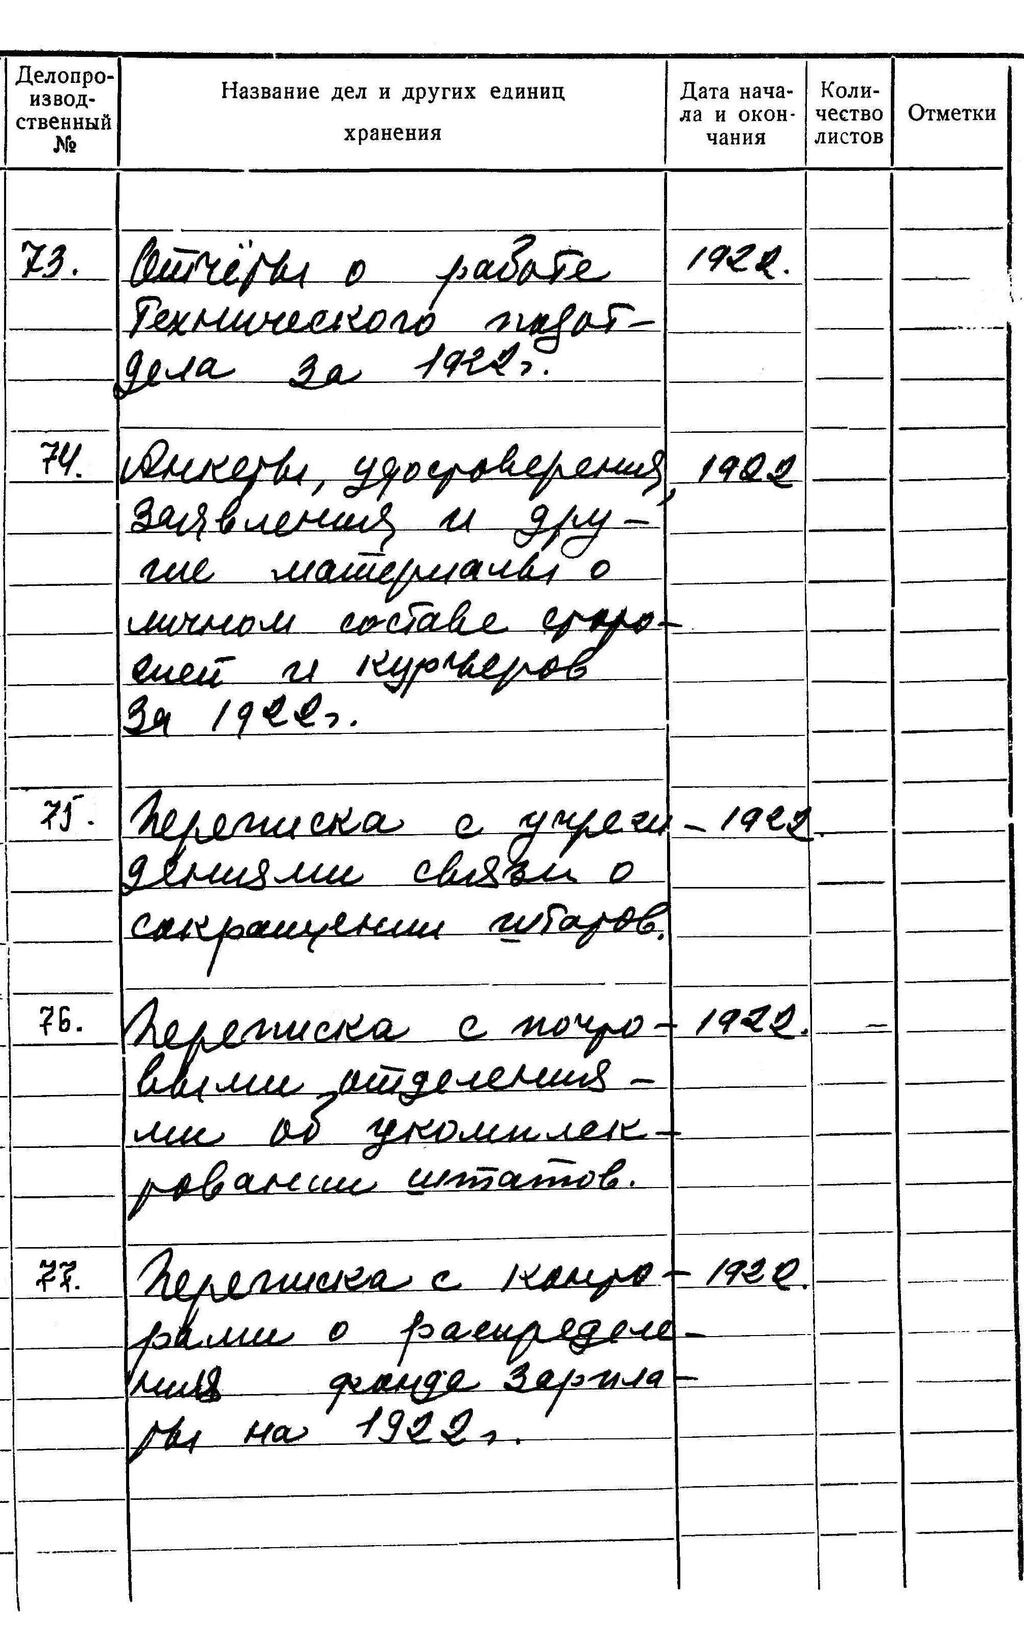 Делопро-
извод-
ственный
№
Название дел и других единиц
хранения
Дата нача-
ла и окон-
чания
Коли-
чество
листов
Отметки
73. Отчёты о работе 1922.
Технического подот-
дела за 1922г.
74. Анкеты, удостоверения, 1922
заявления и дру-
гие материалы о
личном составе сторо-
жей и курьеров
за 1922г.
75. Переписка с учреж- 1922.
дениями связи о
сокращении штатов.
76. Переписка с почто- 1922. -
выми отделения-
ми об укомплек-
товании штатов.
77. Переписка с конто- 1922.
рами о распределе-
ния фонда зарпла-
ты на 1922г.